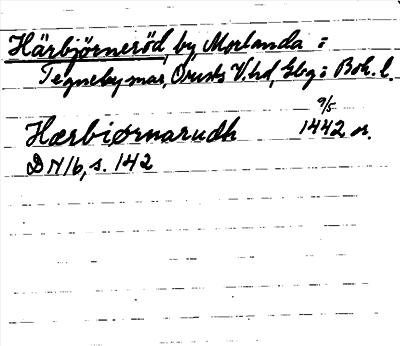 Härbjørneröd, by Morlanda i
Tegneby mar, Orusts V. hd, Gbg: Boh. l.
9/5
Hærbiørnarudh 1442 or.
DN 16, s. 142